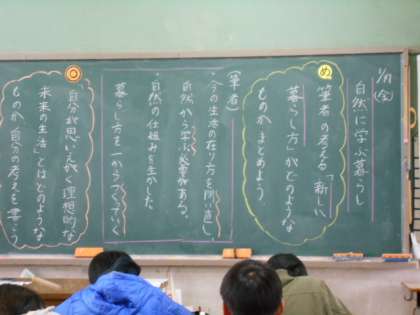 自然に学ぶ暮らし
め
筆者の考える「新しい
暮らし方」がどのような
ものかまとめよう
(筆者)
・今の生活の在り方を問い直し
自然から学ぶ必要がある。
・自然の仕組みを生かした
暮らし方を一からつくっていく
「自分が思いえがく理想的な
未来の生活」とはどのような
ものか自分の考えを書こう